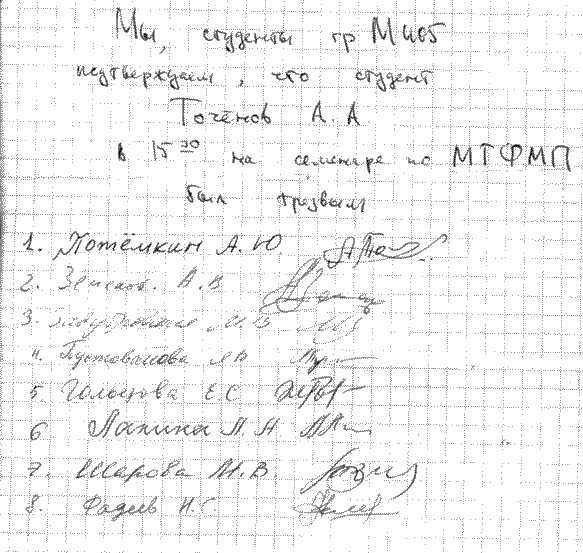 Мы, студенты гр М405
подтверждаем, что студент
Точёнов А. А
в 15 30 на семинаре по МТФМП
был трезвым
1. Потёмкин А. Ю.
2. А. В
3. М. В
4. Пустовалова
5. Гольцова Е. С
6. Лапина Л. Н.
7. Шарова М. В.
8. Фадеев Н. С.